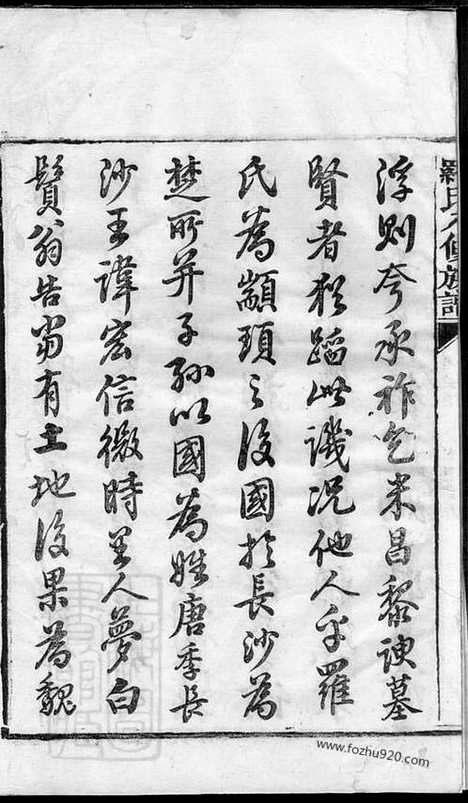 羅氏九修族譜
浮則夸承祚乞米昌黎諛墓
賢者猶蹈此譏况他人乎羅
氏為顓頊之後國於長沙為
楚所并子孫以國為姓唐季長
沙王諱宏信微時里人夢白
鬚翁告當有土地後果為魏
www.fozhu920.com